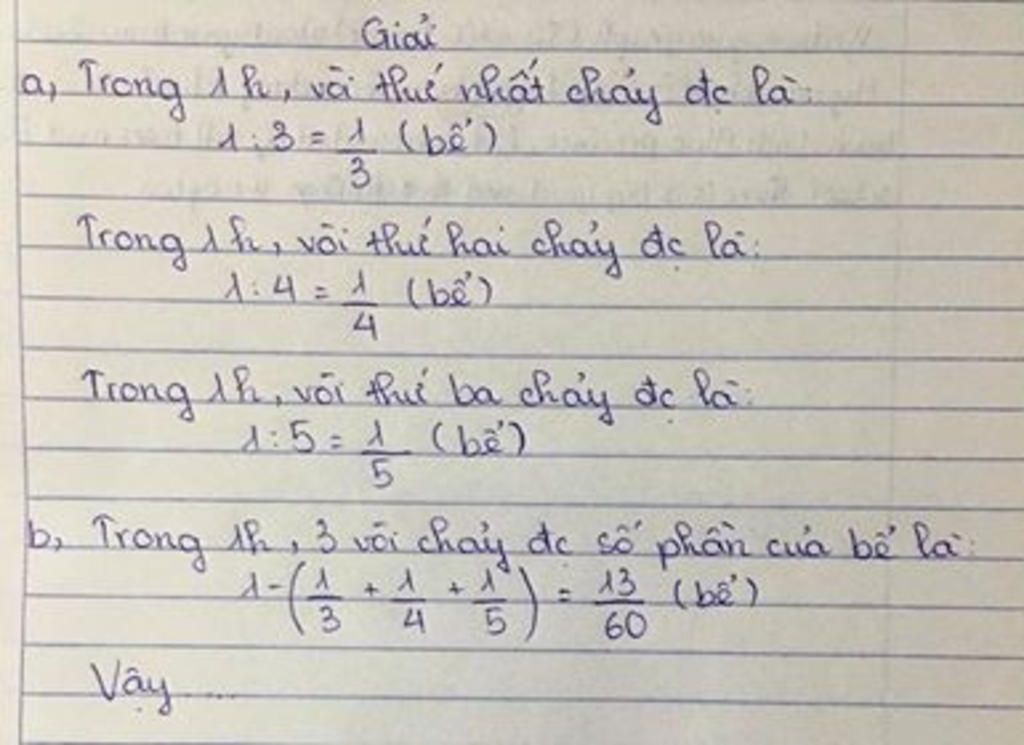 Giải
a, Trong 1h, vòi thứ nhất chảy đc là:
1 : 3 = 1/3 (bể)
Trong 1h, vòi thứ hai chảy đc là:
1 : 4 = 1/4 (bể)
Trong 1h, vòi thứ ba chảy đc là:
1 : 5 = 1/5 (bể)
b, Trong 1h, 3 vòi chảy đc số phần của bể là:
1 - (1/3 + 1/4 + 1/5) = 13/60 (bể)
Vậy ....